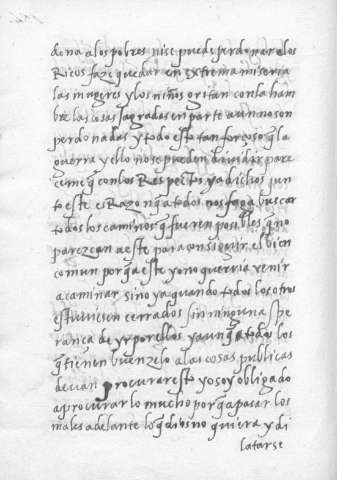 dena a los pobres ni se puede perdonar a los
Ricos faze quedar en extrema miseria
las mugeres y los niños gritan con la ham
bre las cosas sagradas en parte aun no son
perdonadas y todo esto tan forçoso q̃ la
guerra y ello no se pueden dividir pare
ceme q̃ con los Respectos ya dichos jun
to este es Razon q̃ a todos nos haga buscar
todos los caminos q̃ fueren posibles q̃ no
parezcan a este para conseguir el bien
comun porq̃ a este yo no querria venir
a caminar sino ya quando todos los otros
estuviesen cerrados sin ninguna spe
rança de yr por ellos y aunq̃ a todos los
q̃ tienen buen zelo a las cosas publicas
devan procurar esto yo soy obligado
a procurarlo mucho porq̃ a pasar los
males adelante lo q̃ dios no quiera y di
latarse